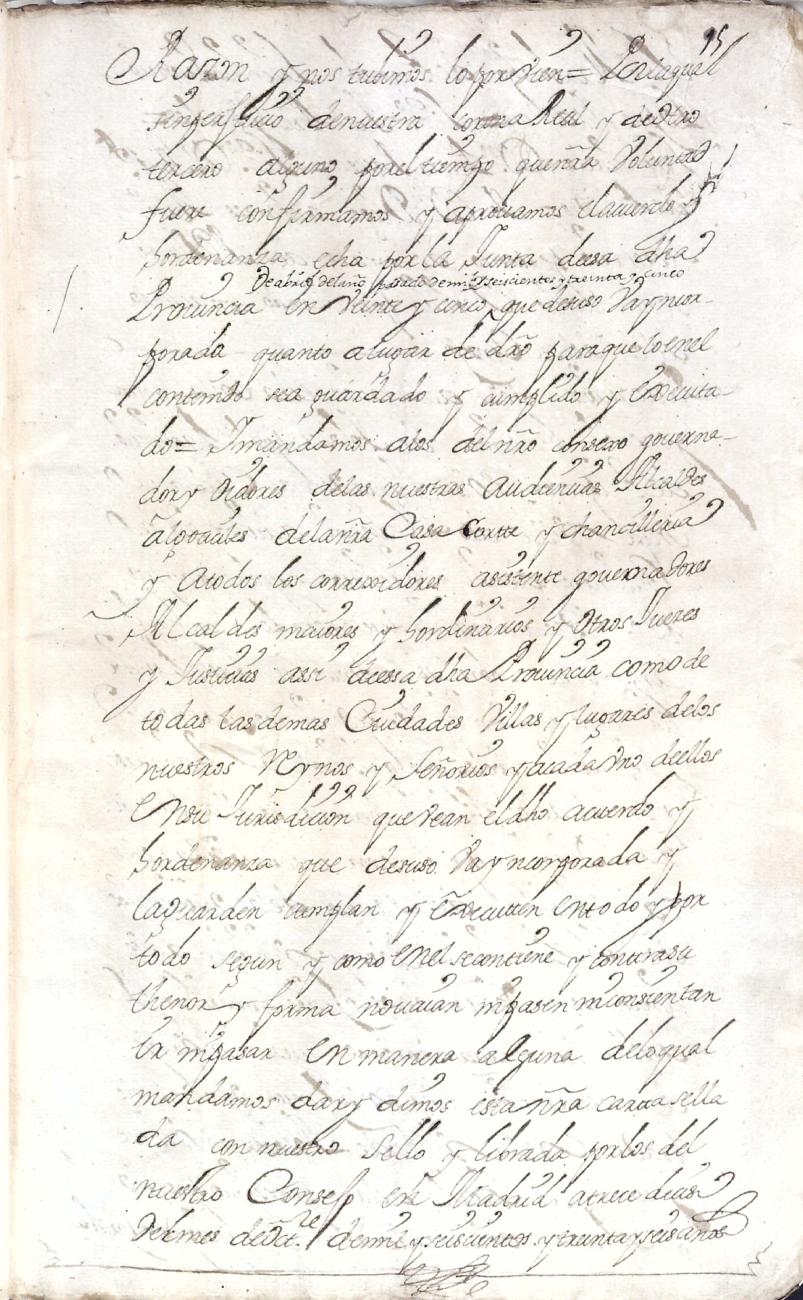 95
Razon y nos tubimos lo por vien = Por la qual
sin perjuicio de nuestra corona Real y de otro
tercero alguno por el tiempo que nrã Voluntad
fuere confirmamos y aprovamos el acuerdo y
hordenanza echa por la Junta desa dha
de abril del año pasado de mil y seiscientos y treinta y cinco
Provincia en Veinte y cinco que desuso Va yncor-
porada quanto a lugar de drõ para que lo en el
contenido sea guardado y cumplido y executa-
do = I mandamos a los del nrõ consexo governa-
dor y Oidores de las nuestras Audiencias Alcaldes
alguaciles de la nrã Casa Corte y chancilleria
y a todos los correxidores asistente governadores
Alcaldes maiores y hordinarios y otros Jueces
y Justicias assi dessa dha Provincia como de
todas las demas Ciudades Villas y lugares de los
nuestros Reynos y Señorios y a cada Vno de ellos
en su Jurisdicion que vean el dho acuerdo y
hordenanza que desuso Va yncorporada y
la guarden cumplan y executen en todo y por
todo segun y como en el se contiene y contra su
thenor y forma no vaian ni pasen ni consientan
Ir ni pasar en manera alguna de lo qual
mandamos dar y dimos esta nrã carta sella
da con nuestro Sello y librada por los del
nuestro Consejo en Madrid a trece dias
del mes de Oct.re de mil y seiscientos y treinta y seis años